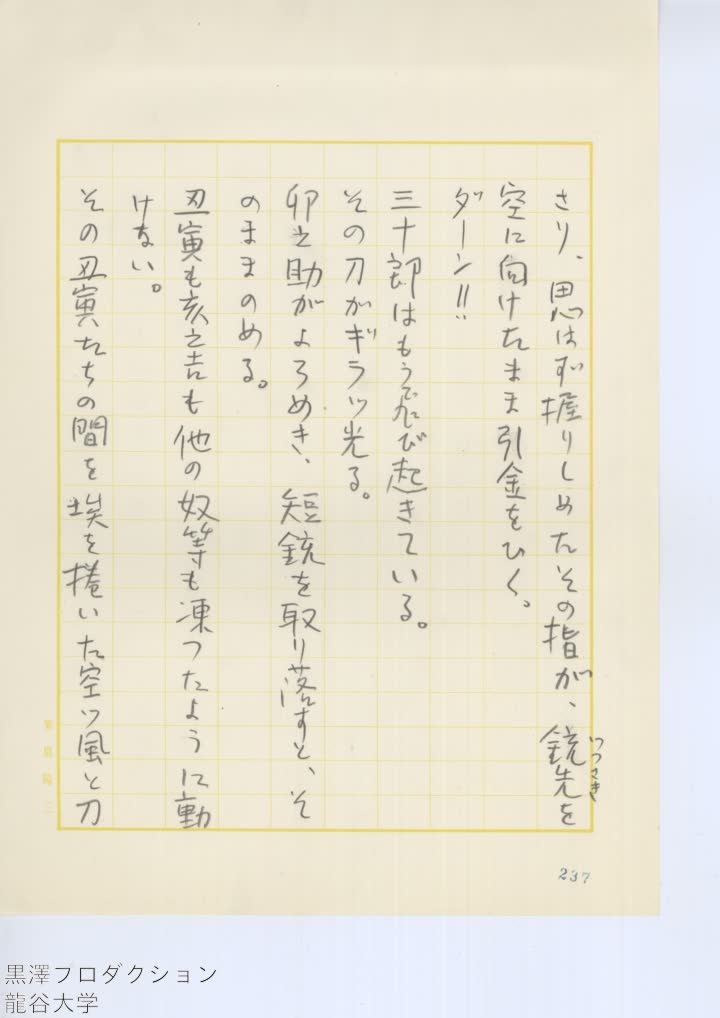 さり、思はず握りしめたその指が、銃先を
つつさき
空に向けたまま引金をひく。
ダーン!!
三十郎はもう飛び起きている。
その刀がギラッ光る。
卯之助がよろめき、短銃を取り落すと、そ
のままのめる。
丑寅も亥之吉も他の奴等も凍つたように動
けない。
その丑寅たちの間を埃を捲いた空ッ風と刀
237
黒澤プロダクション
龍谷大学